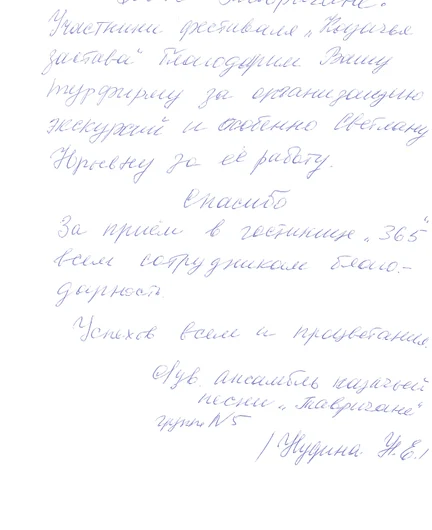 Участники фестиваля „Казачья
застава" благодарим Вашу
турфирму за организацию
экскурсий и особенно Светлану
Юрьевну за её работу.
Спасибо
За приём в гостинице „365"
всем сотрудникам благо-
дарность.
Успехов всем и процветания.
ансамбль казачьей
песни „Тавричане"
группа N5
/ Нудина Н.Е./